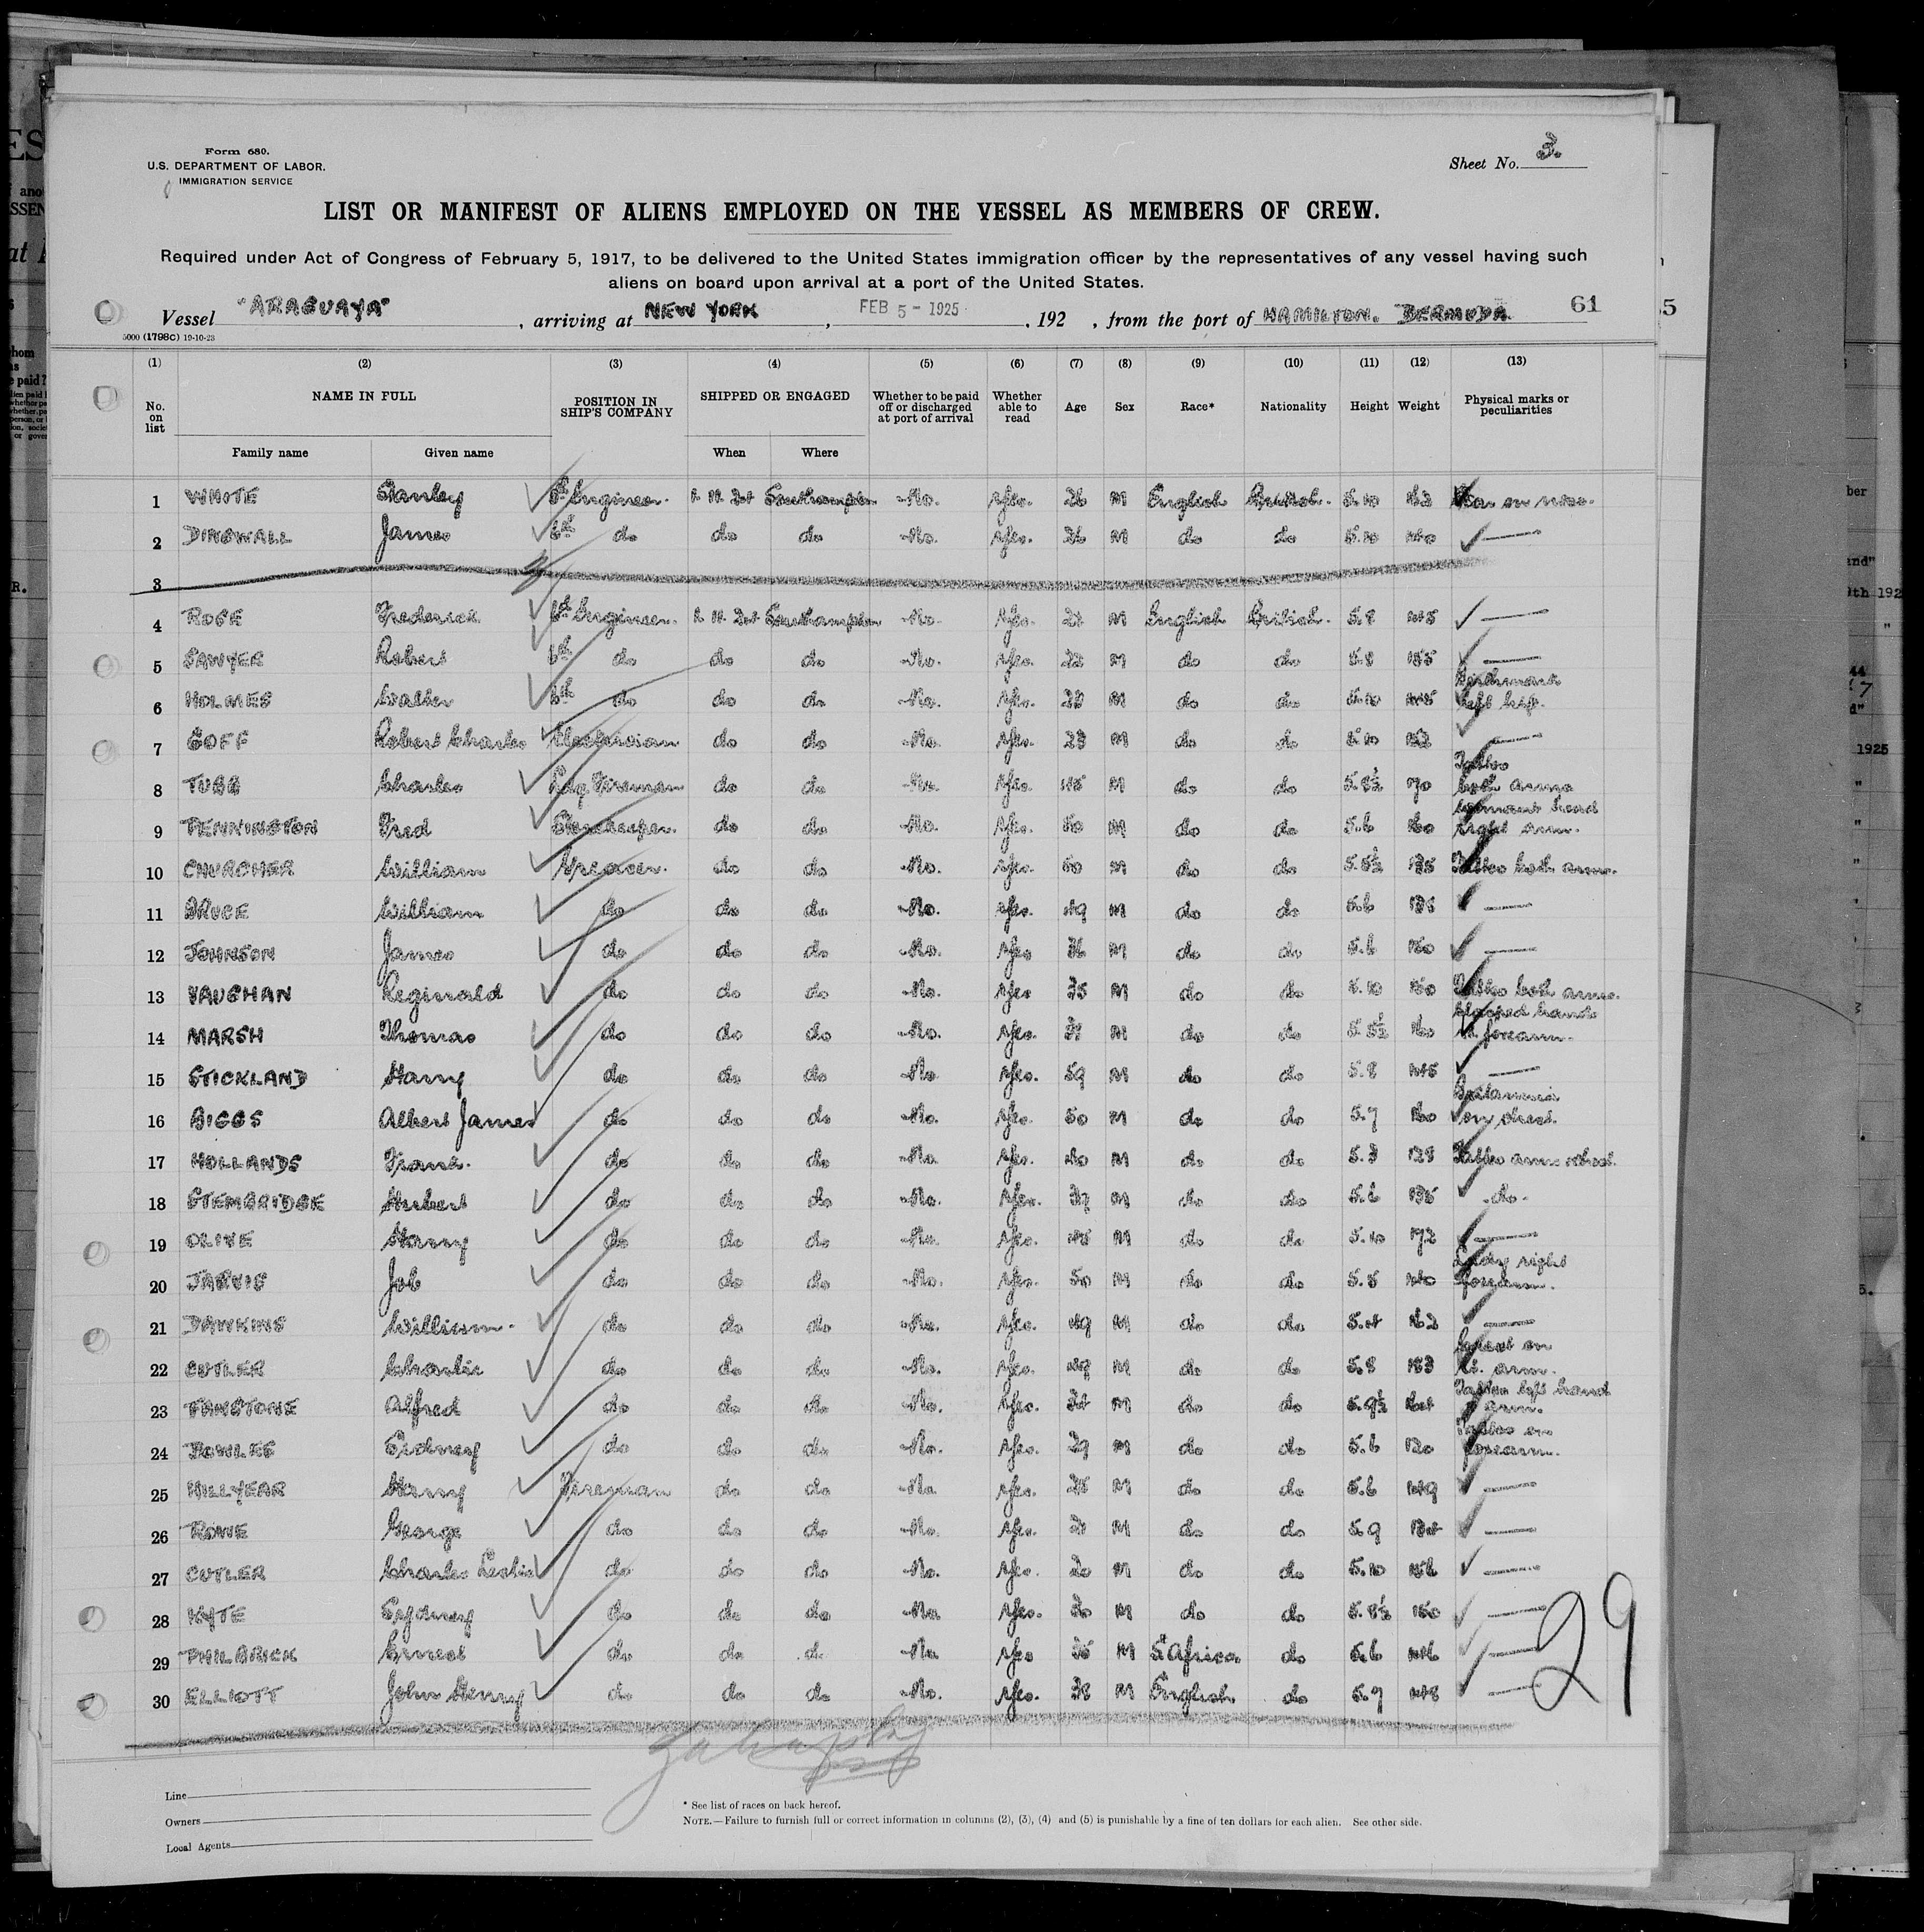 Form 680.
U.S. DEPARTMENT OF LABOR.
IMMIGRATION SERVICE
Sheet No. 3.
LIST OR MANIFEST OF ALIENS EMPLOYED ON THE VESSEL AS MEMBERS OF CREW.
Required under Act of Congress of February 5, 1917, to be delivered to the United States immigration officer by the representatives of any vessel having such
aliens on board upon arrival at a port of the United States.
Vessel "ARAGUAYA", arriving at NEW YORK, FEB 5 - 1925, 192 , from the port of HAMILTON. BERMUDA 61
5000 (1798C) 19-10-23
(1) (2) (3) (4) (5) (6) (7) (8) (9) (10) (11) (12) (13)
No. on list NAME IN FULL POSITION IN SHIP'S COMPANY SHIPPED OR ENGAGED Whether to be paid off or discharged at port of arrival Whether able to read Age Sex Race* Nationality Height Weight Physical marks or peculiarities
Family name Given name When Where
1 WHITE Stanley Engineer. Southampton No. Yes. 26 M English British. 5.10 Scar on nose.
2 DINGWALL James 6th do do do No. Yes. 26 M do do 5.10 140 —
3
4 ROSE Frederick 6th Engineer. Southampton No. Yes. M English British. 5.8 145 —
5 SAWYER Robert 6th do do do No. Yes. 22 M do do 5.8 —
6 HOLMES Walter 6th do do do No. Yes. M do do 5.10 145 Birthmark left hip.
7 GOFF Robert Charles Electrician do do No. Yes. 23 M do do 5.10 —
8 TUBB Charles Ldg. Fireman do do No. Yes. 45 M do do 5.8½ Tattoo both arms
9 PENNINGTON Fred Storekeeper. do do No. Yes. M do do 5.6 womans head right arm.
10 CHURCHER William Greaser. do do No. Yes. M do do 5.5½ Tattoo both arms.
11 BRUCE William do do do No. Yes. 49 M do do 5.6 —
12 JOHNSON James do do do No. Yes 36 M do do 5.6 —
13 VAUGHAN Reginald do do do No. Yes 35 M do do 5.10 150 Tattoo both arms.
14 MARSH Thomas do do do No. Yes. M do do 5.5½ clasped hands forearm.
15 STICKLAND Harry do do do No. Yes. 59 M do do 5.8 145 —
16 BIGGS Albert James do do do No. Yes. 50 M do do 5.7 Britannia on chest.
17 HOLLANDS Frank. do do do No. Yes. 40 M do do 5.3 128 Tattoo arms & chest
18 STEMBRIDGE Hubert do do do No. Yes. M do do 5.6 135 do.
19 OLIVE Harry do do do No. Yes. 45 M do do 5.10 172 —
20 JARVIS Job do do do No. Yes. 50 M do do 5.5 140 Lady right forearm.
21 DAWKINS William. do do do No. Yes. 49 M do do 5.4 —
22 CUTLER Charlie do do do No. Yes. M do do 5.8 on arm.
23 FANSTONE Alfred do do do No. Yes. 34 M do do 5.9½ Tattoo left hand & arm.
24 Sidney do do do No. Yes. 29 M do do 5.6 Tattoo on forearm.
25 HILLYEAR Harry Fireman do do No. Yes. M do do 5.6 149 —
26 ROWE George do do do No. Yes. M do do 5.9 134 —
27 CUTLER Charles Leslie do do do No. Yes. 20 M do do 5.10 156 —
28 KYTE Sydney do do do No. Yes. 30 M do do 5.8½ 150 —
29 PHILBRICK Ernest do do do No. Yes M S. Africa. do 5.6 146 —
30 ELLIOTT John Henry do do do No. Yes. 38 M English. do 5.7 148 —
29
Line
Owners
Local Agents
* See list of races on back hereof.
NOTE.—Failure to furnish full or correct information in columns (2), (3), (4) and (5) is punishable by a fine of ten dollars for each alien. See other side.